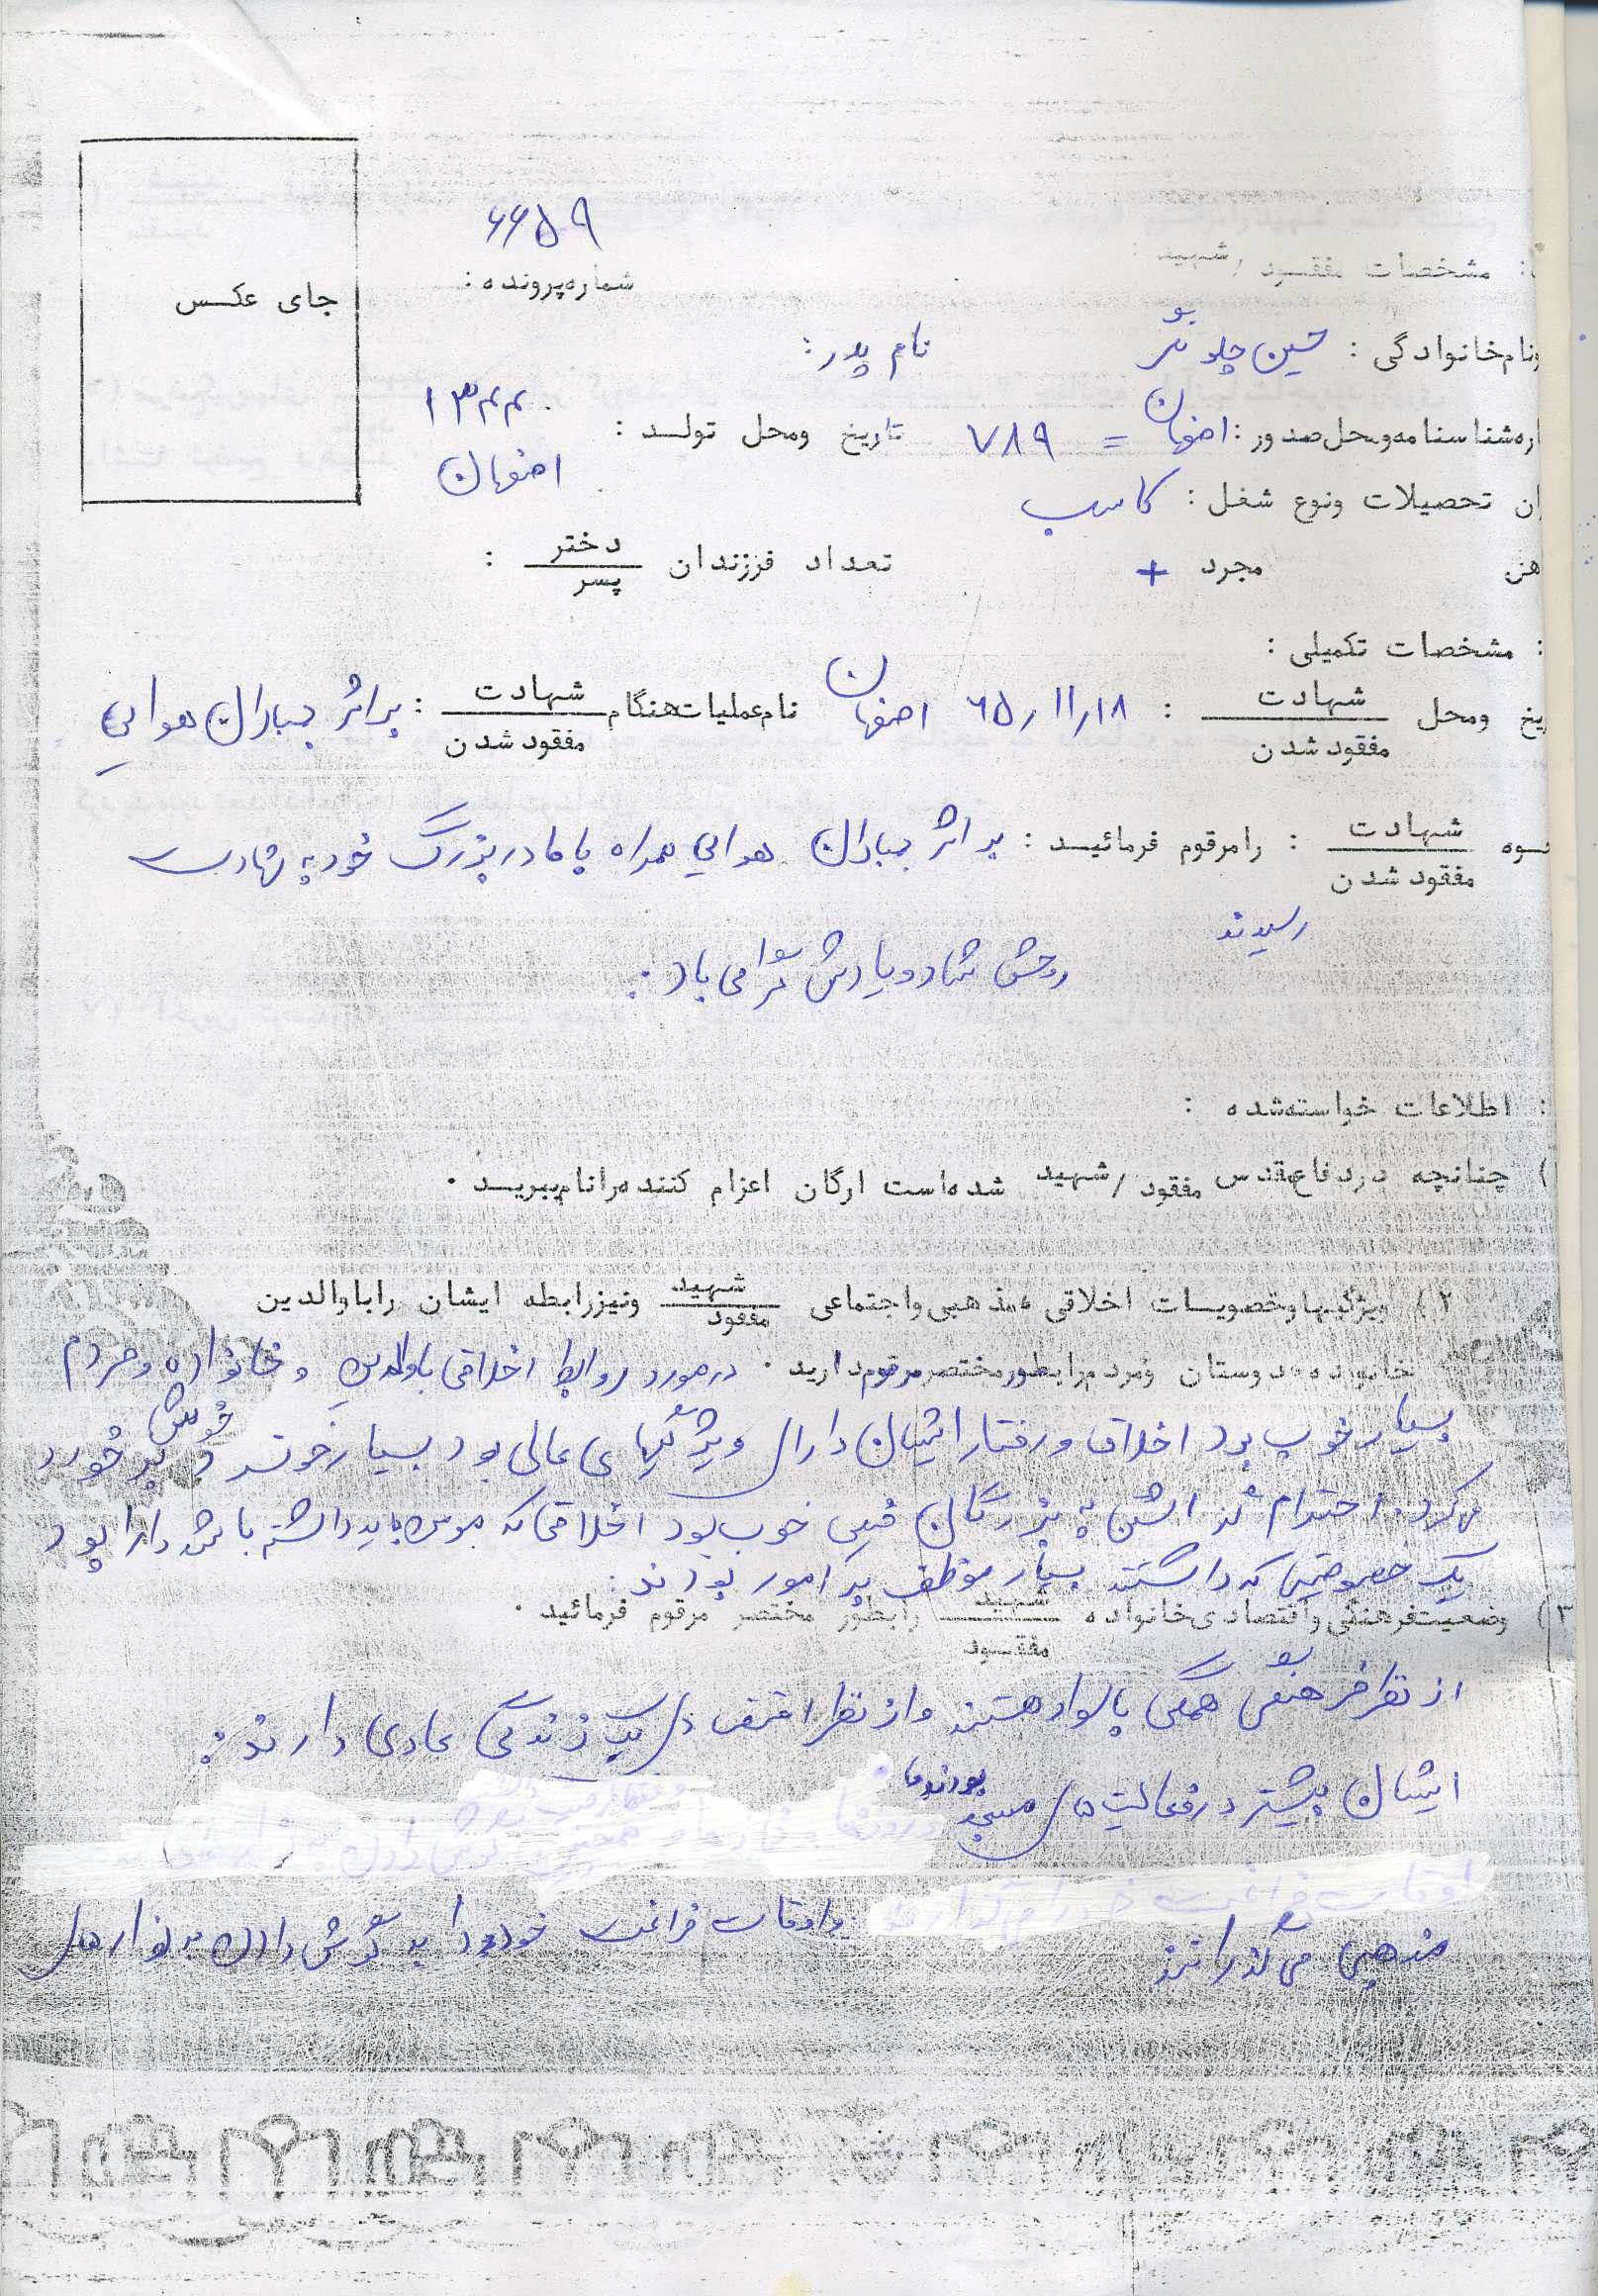 ۶۶۵۹
جای عکس
شماره پرونده :
: مشخصات مفقود / شهید :
ونام خانوادگی : حسین چلونگر نام پدر :
اره شناسنامه ومحل صدور : اصفهان = ۷۸۹ تاریخ ومحل تولد : ۱۳۴۴
اصفهان
ان تحصیلات ونوع شغل : کاسب
هل مجرد + تعداد فرزندان دختر / پسر :
: مشخصات تکمیلی :
یخ ومحل شهادت / مفقود شدن : ۶۵/۱۱/۱۸ اصفهان نام عملیات هنگام شهادت / مفقود شدن : براثر بمباران هوایی
حوه شهادت / مفقود شدن : رامرقوم فرمائید : براثر بمباران هوایی همراه با مادربزرگ خود به شهادت
رسیدند
روحش شاد و یادش گرامی باد :
: اطلاعات خواسته شده :
۱) چنانچه دردفاع مقدس مفقود / شهید شده است ارگان اعزام کننده رانام ببرید .
۲) ویژگیها وخصوصیات اخلاقی ، مذهبی واجتماعی شهید / مفقود ونیزرابطه ایشان راباوالدین
خانواده ، دوستان ومردم رابطورمختصرمرقوم دارید . درمورد روابط اخلاقی با والدین و خانواده و مردم
بسیار خوب بود اخلاق و رفتار ایشان دارای ویژگیهای عالی بود بسیار خوش برخورد
می کرد . احترام گذاشتن به بزرگان خیلی خوب بود اخلاقی که مومن باید داشته باشد دارا بود
یک خصوصیتی که داشتند بسیار موظف بر امور بودند :
۳) وضعیت فرهنگی واقتصادی خانواده شهید / مفقود رابطور مختصر مرقوم فرمائید .
از نظر فرهنگی همگی باسواد هستند و از نظر اقتصادی یک زندگی عادی دارند :
ایشان بیشتر در فعالیت های مسجد بودند
واوقات فراغت خود را به گوش دادن به نوارهای
مذهبی می گذراندند